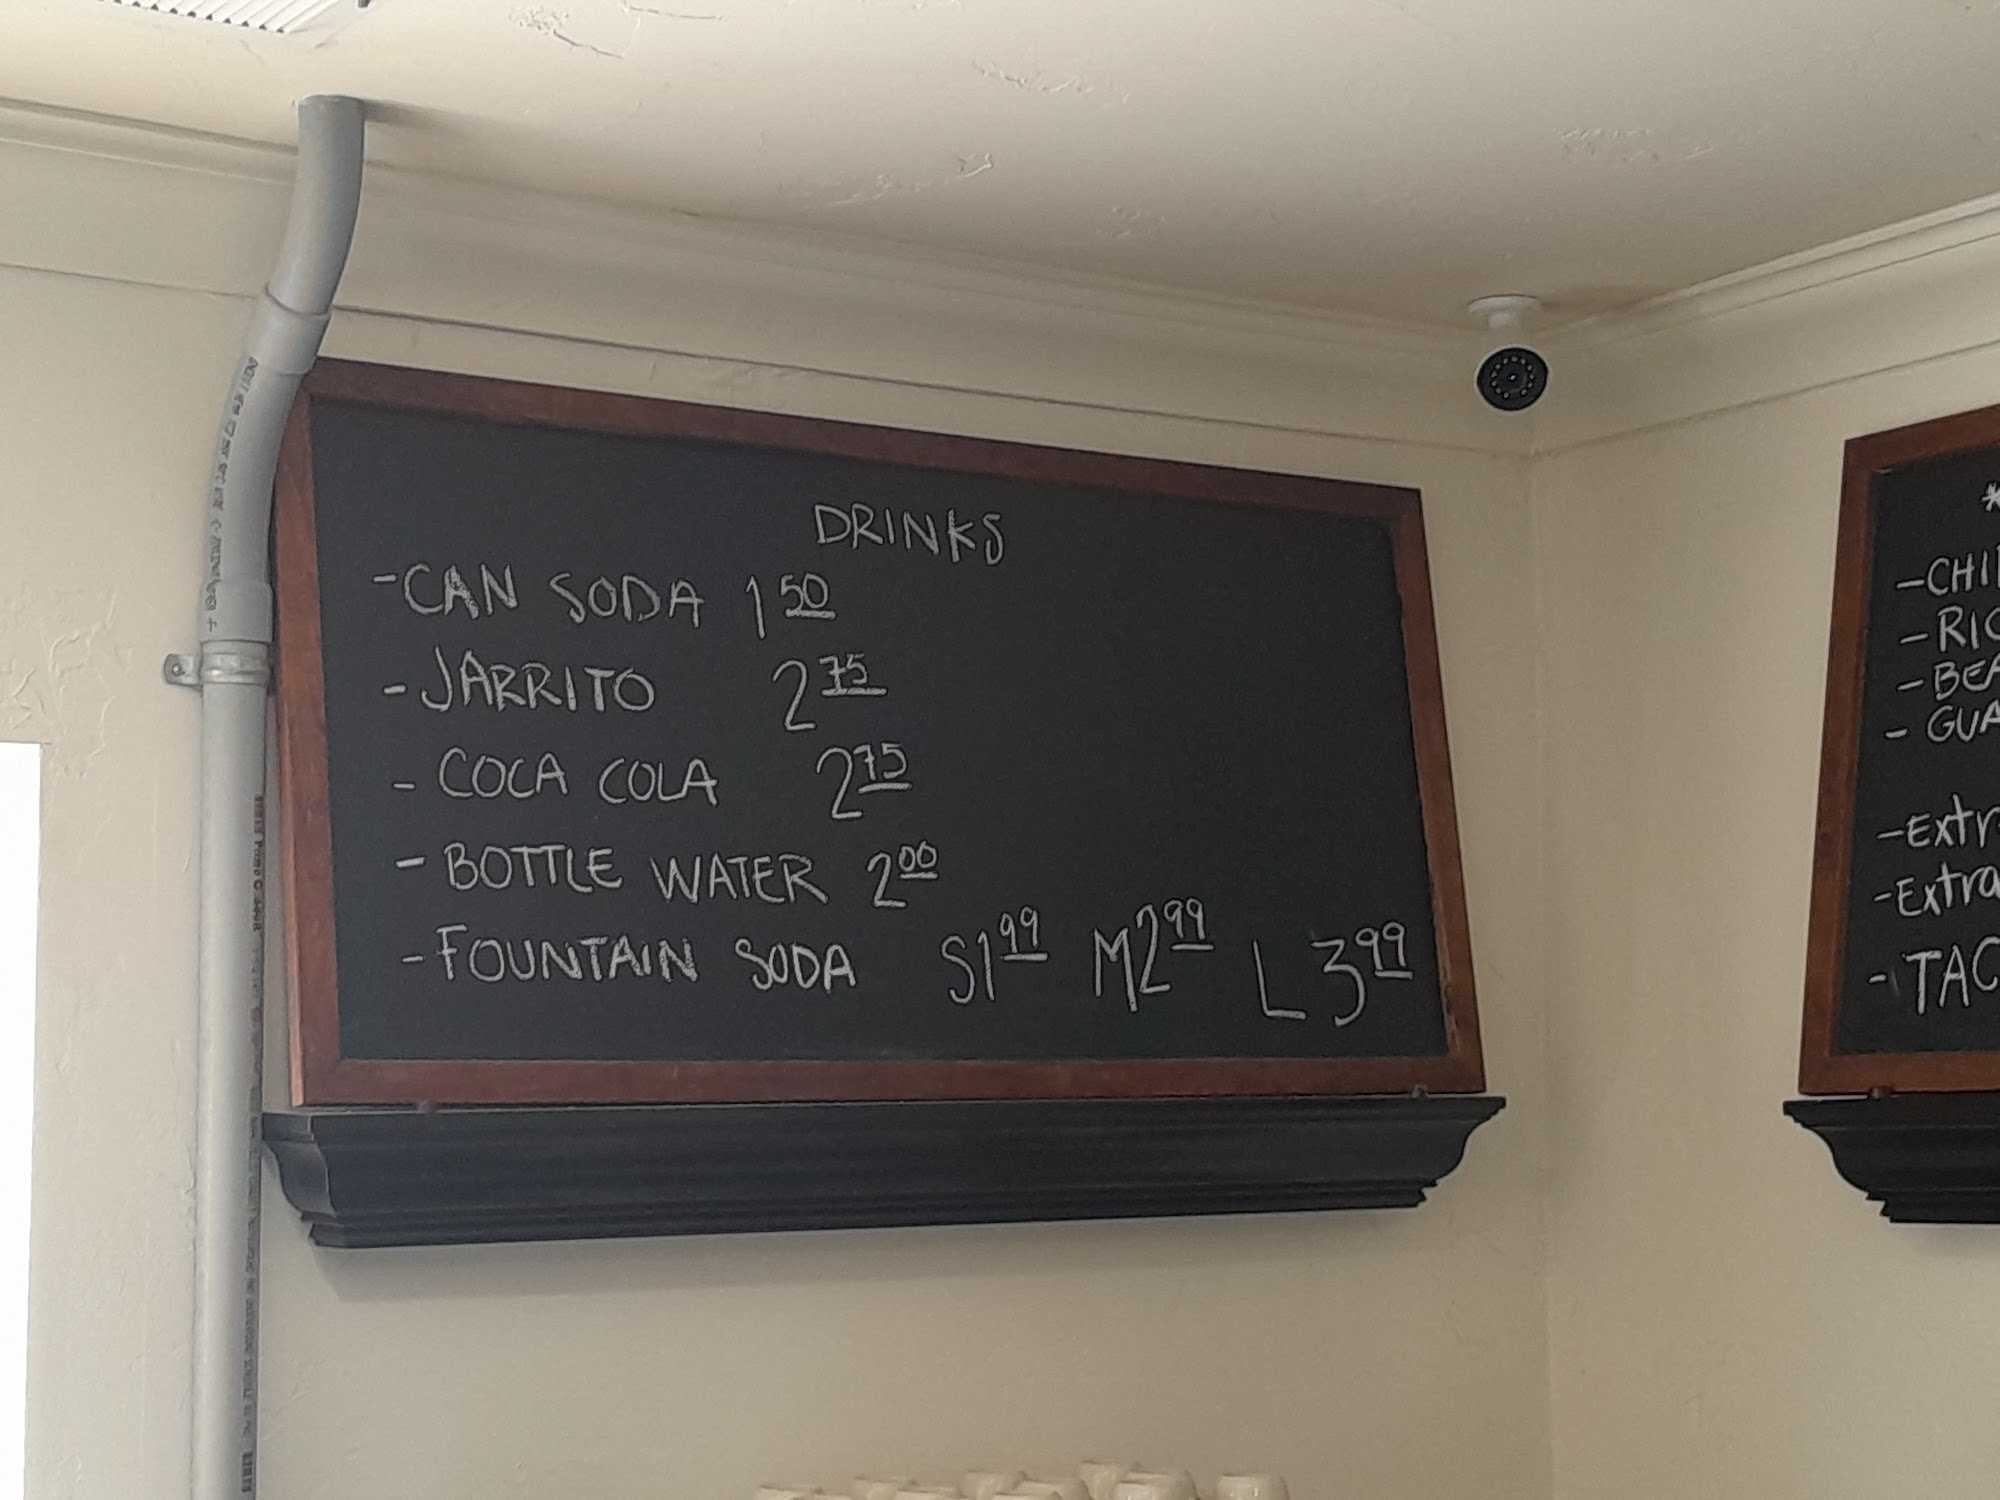 DRINKS
-CAN SODA 1 50
-JARRITO 2 75
-COCA COLA 2 75
-BOTTLE WATER 2 00
-FOUNTAIN SODA S1 99 M2 99 L 3 99
*
-CHI
-RIC
-BEA
-GUA
-Extr
-Extra
-TAC